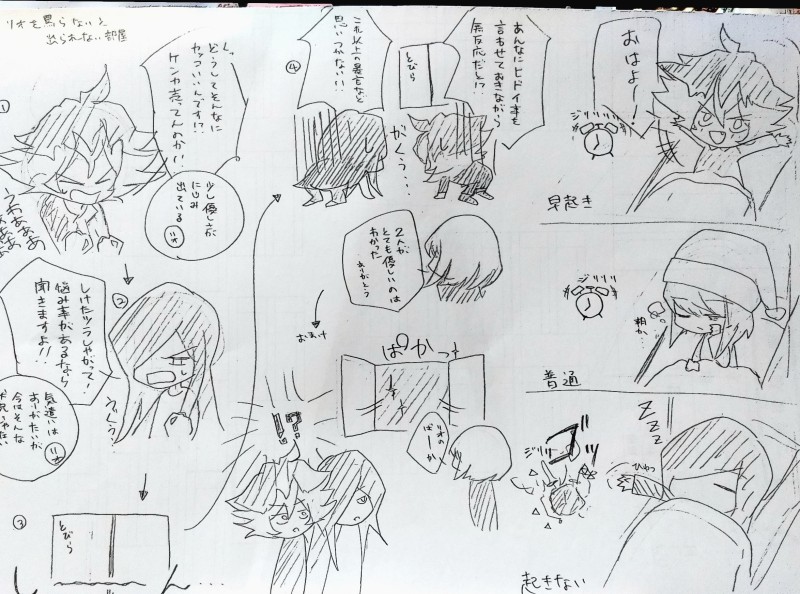 リオを罵らないと
出られない部屋
①
くっ、
どうしてそんなに
カッコいいんです!?
ケンカ売ってんのか!!
少し優しさが
にじみ
出ている
リオ
うああああ
②
しけたツラしやがって!
悩み事があるなら
聞きますよ!!
ぐくぅ…
気遣いは
ありがたいが
今はそんな
リオ
③
とびら
…
④
これ以上の暴言など
思いつかない…!
とびら
あんなにヒドイ事を
言わせておきながら
無反応だと!?
がくぅ…
2人が
とても優しいのは
わかった
ありがとう
おまけ
ぱかっ
リオの
ばーか
!?
おはよー!
ジリリリ
早起き
ジリリリ
朝か…
普通
ZZZ
ジリ
ブーッ
ひゅっ
起きない